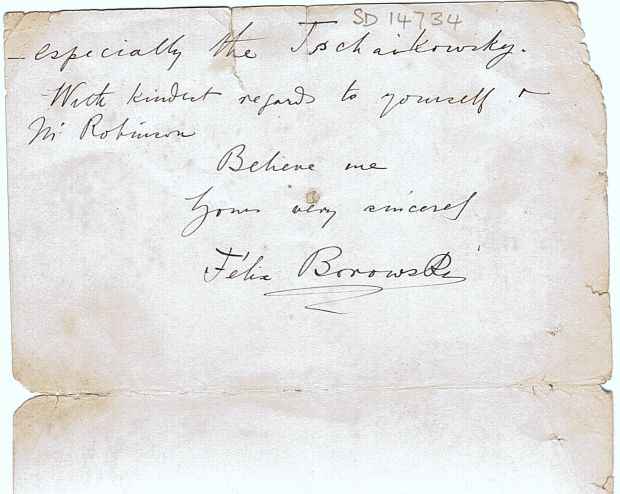 SD 14734
– especially the Tschaikowsky.
With kindest regards to yourself &
Mr Robinson
Believe me
Yours very sincerely
Félix Borowski